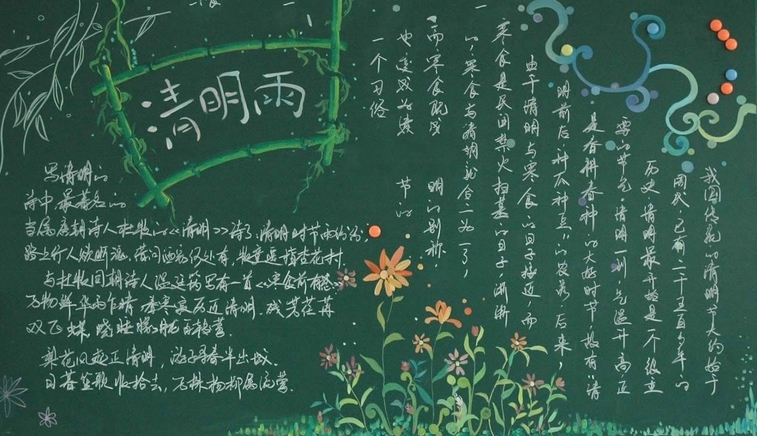 清明雨
写清明的
诗中最著名的
当属唐朝诗人杜牧的《清明》诗了,清明时节雨纷纷,
路上行人欲断魂,借问酒家何处有,牧童遥指杏花村.
与杜牧同朝诗人温庭筠里有一首《寒食前有怀》
万物鲜华雨乍晴 春寒寂历近清明,残芳荏苒
双飞蝶,晓睡朦胧百啭莺
梨花风起正清明,游子寻春半出城.
日暮笙歌收拾去,万株杨柳属流莺.
我国传统的清明节大约始于
周代,已有二千五百多年的
历史,清明最开始是一个很重
要的节气,清明一到,气温升高,正
是春耕春种的大好时节,故有“清
明前后,种瓜种豆”的谚语.后来,
由于清明与寒食的日子接近,而
寒食是民间禁火扫墓的日子,渐渐
的,寒食与清明就合二为一了,
而寒食既成 明的别称,
也变成为清 节的
一个习俗